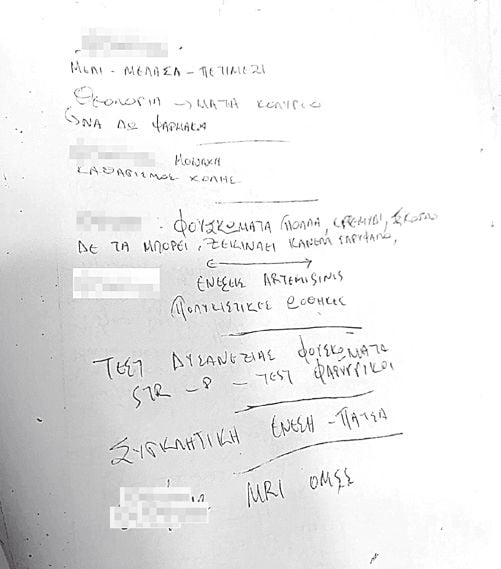 ΜΕΛΙ - ΜΕΛΑΣΑ - ΠΕΤΙΜΕΖΙ
ΘΕΟΛΟΓΙΑ → ΜΑΤΙΑ ΚΟΛΥΡΙΟ
ΝΑ ΔΩ ΦΑΡΜΑΚΑ
ΜΟΝΑΧΗ
ΚΑΘΑΡΙΣΜΟΣ ΧΟΛΗΣ
- ΦΟΥΣΚΩΜΑΤΑ ΠΟΛΛΑ, ΚΡΕΜΥΔΙ, ΣΚΟΡΔΟ
ΔΕ ΤΑ ΜΠΟΡΕΙ, ΞΕΚΙΝΑΕΙ ΚΑΝΕΛΑ
ΕΝΕΣΕΙΣ ARTEMISINIS
ΠΟΛΥΚΙΣΤΙΚΕΣ ΩΟΘΗΚΕΣ
ΤΕΣΤ ΔΥΣΑΝΕΞΙΑΣ ΦΟΥΣΚΩΜΑΤΑ
STR - - TEST ΦΑΡΥΓΓΙΚΟΙ
ΣΥΓΚΛΗΤΙΚΗ ΕΝΕΣΗ -
MRI ΟΜΣΣ